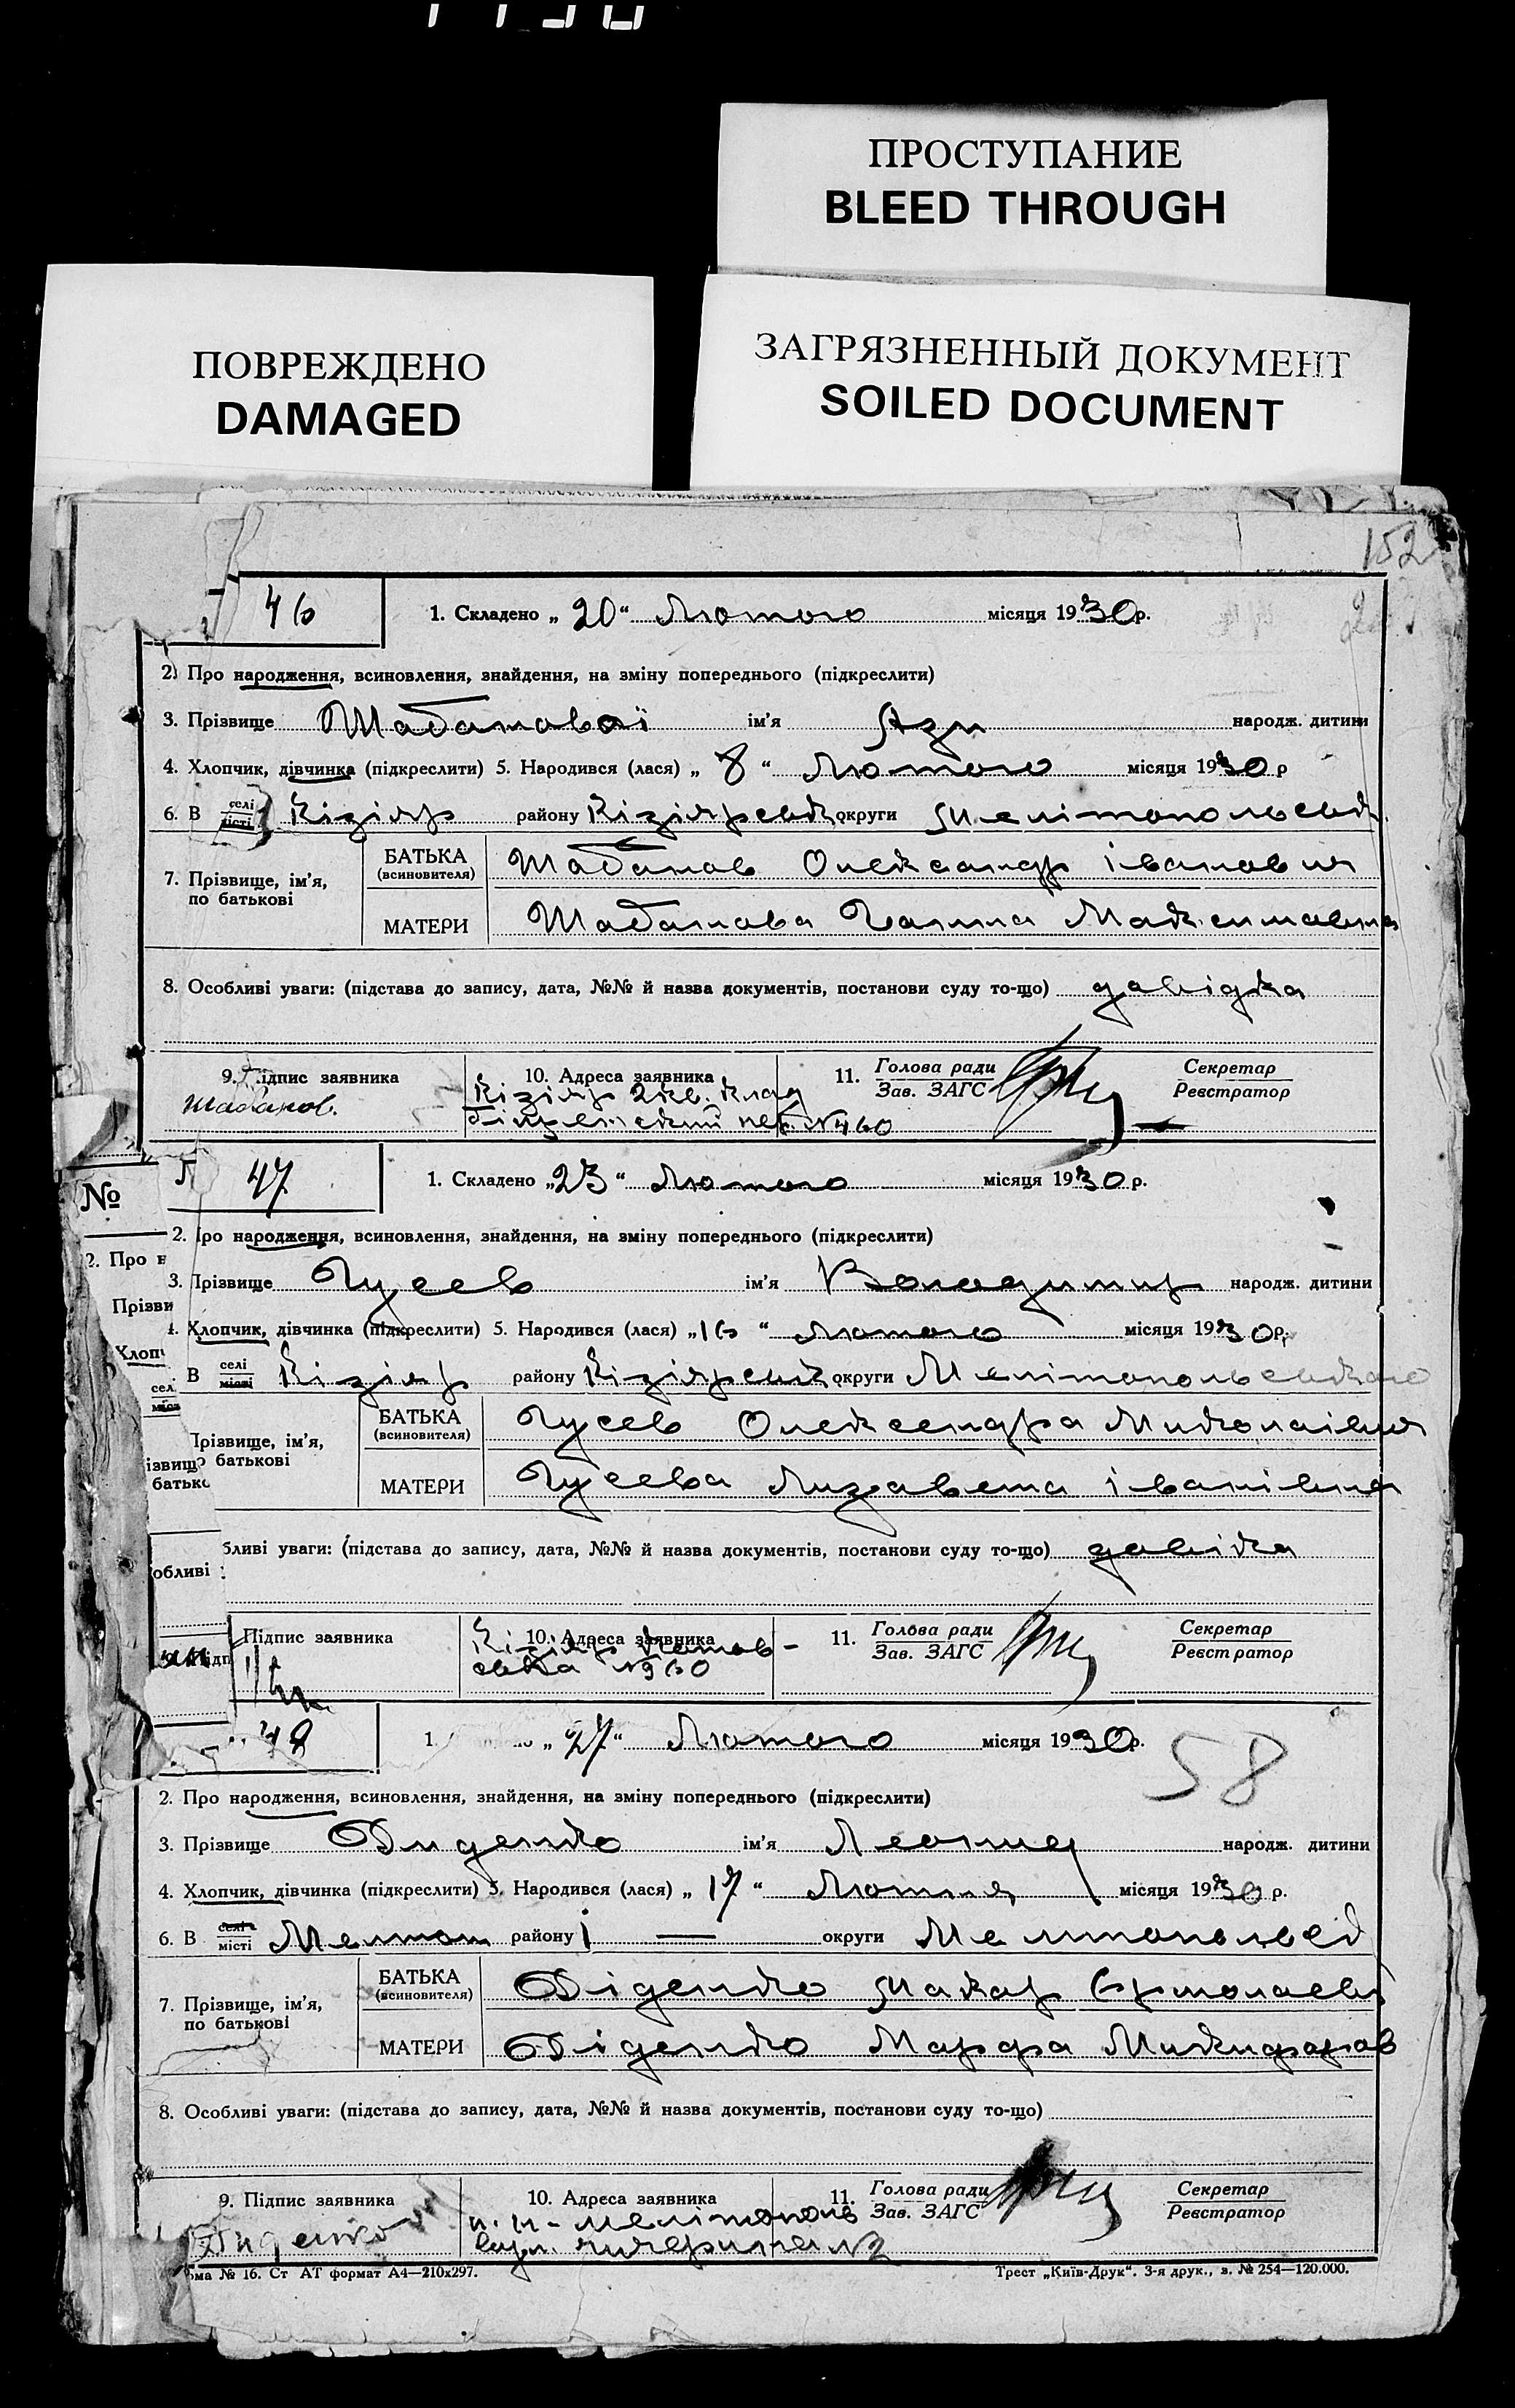 ПРОСТУПАНИЕ
BLEED THROUGH
ПОВРЕЖДЕНО
DAMAGED
ЗАГРЯЗНЕННЫЙ ДОКУМЕНТ
SOILED DOCUMENT
152
46
1. Складено „ 20 “ Лютого місяця 1930 р.
2. Про народження, всиновлення, знайдення, на зміну попереднього (підкреслити)
3. Прізвище Шабанової ім'я Ази народж. дитини
4. Хлопчик, дівчинка (підкреслити) 5. Народився (лася) „ 8 “ Лютого місяця 1930 р
6. В селі місті Кізіяр району Кізіярськ округи Мелітопольськ.
7. Прізвище, ім'я, по батькові
БАТЬКА (всиновителя) Шабанов Олександр Іванович
МАТЕРИ Шабанова Галина Максимовна
8. Особливі уваги: (підстава до запису, дата, №№ й назва документів, постанови суду то-що) довідка
9. Підпис заявника 10. Адреса заявника 11. Голова ради Секретар
Зав. ЗАГС Реєстратор
Шабанов. Кізіяр
№ 460
47
1. Складено „ 23 “ Лютого місяця 1930 р.
№
2. Про народження, всиновлення, знайдення, на зміну попереднього (підкреслити)
2. Про н
3. Прізвище Гусев ім'я Володимир народж. дитини
Прізви
4. Хлопчик, дівчинка (підкреслити) 5. Народився (лася) „ 16 “ Лютого місяця 1930 р.
Хлоп
В селі місті Кізіяр району Кізіярськ округи Мелітопольського
Прізвище, ім'я, батькові
БАТЬКА (всиновителя) Гусев Олександра Миколаівич
МАТЕРИ Гусева Лизавета Іванівна
бливі уваги: (підстава до запису, дата, №№ й назва документів, постанови суду то-що) довідка
обливі
Підпис заявника 10. Адреса заявника 11. Голова ради Секретар
Зав. ЗАГС Реєстратор
Кізіяр
№ 60
48
1. „ 27 “ Лютого місяця 1930 р.
58
2. Про народження, всиновлення, знайдення, на зміну попереднього (підкреслити)
3. Прізвище Диденко ім'я Леонид народж. дитини
4. Хлопчик, дівчинка (підкреслити) 5. Народився (лася) „ 17 “ місяця 1930 р.
6. В селі місті Мелитоп району І — округи Мелитопольськ
7. Прізвище, ім'я, по батькові
БАТЬКА (всиновителя) Діденко Макар Ермолаеви
МАТЕРИ Діденко Марфа Микифоров
8. Особливі уваги: (підстава до запису, дата, №№ й назва документів, постанови суду то-що)
9. Підпис заявника 10. Адреса заявника 11. Голова ради Секретар
Зав. ЗАГС Реєстратор
Диденко Мелітополь
вул. №2
ма № 16. Ст АТ формат А4—210х297. Трест „Київ-Друк“. 3-я друк., з. № 254—120.000.